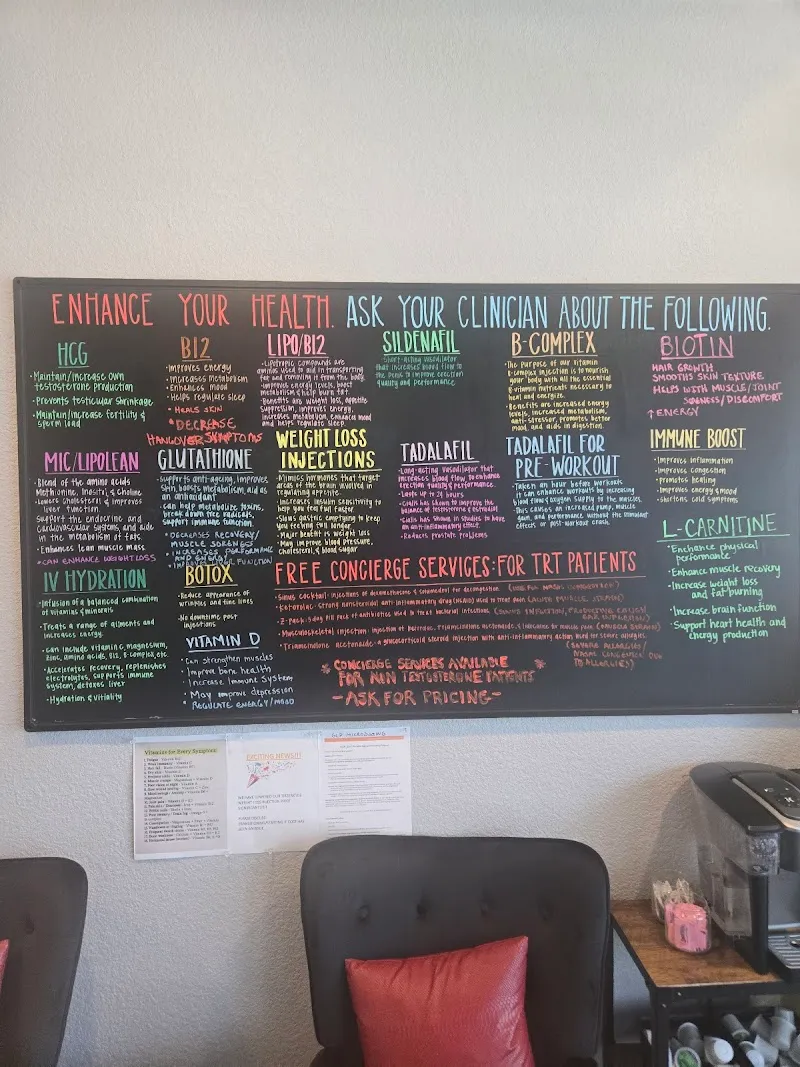 ENHANCE YOUR HEALTH. ASK YOUR CLINICIAN ABOUT THE FOLLOWING.
HCG
• Maintain/Increase own
testosterone production
• Prevents testicular shrinkage
• Maintain/Increase fertility &
sperm load
B12
• Improves energy
• Increases metabolism
• Enhances mood
• Helps regulate sleep
• HEALS SKIN
* DECREASE
HANGOVER SYMPTOMS
LIPO/B12
• Lipotropic compounds are
aminos used to aid in transporting
fat and removing it from the body.
• Improves energy levels, boost
metabolism & help burn fat.
• Benefits are weight loss, appetite
suppression, improves energy,
increases metabolism, enhances mood
and helps regulate sleep.
SILDENAFIL
• Short-acting vasodilator
that increases blood flow to
the penis to improve erection
quality and performance
B-COMPLEX
• The purpose of our vitamin
B-complex injection is to nourish
your body with all the essential
B-vitamin nutrients necessary to
heal and energize.
• Benefits are increased energy
levels, increased metabolism,
anti-stressor, promotes better
mood, and aids in digestion.
BIOTIN
HAIR GROWTH
SMOOTHS SKIN TEXTURE
HELPS WITH MUSCLE/JOINT
SORENESS/DISCOMFORT
↑ ENERGY
MIC/LIPOLEAN
• Blend of the amino acids
Methionine, Inositol & Choline
• Lowers cholesterol & improves
liver function.
• Support the endocrine and
cardiovascular systems, and aide
in the metabolism of fats.
• Enhances lean muscle mass
• CAN ENHANCE WEIGHT LOSS
GLUTATHIONE
• Supports anti-ageing, improves
skin, boosts metabolism, aid as
an antioxidant
• Can help metabolize toxins,
break down free radicals,
support immune function.
• DECREASES RECOVERY/
MUSCLE SORENESS
• INCREASES PERFORMANCE
AND ENERGY
WEIGHT LOSS
INJECTIONS
• Mimics hormones that target
areas of the brain involved in
regulating appetite.
• Increases insulin sensitivity to
help you feel full faster
• Slows gastric emptying to keep
you feeling full longer
• Major benefit is weight loss
• May improve blood pressure,
cholesterol, & blood sugar
TADALAFIL
• Long-acting vasodilator that
increases blood flow to enhance
erection quality & performance.
• Lasts up to 24 hours
• Cialis has shown to improve the
balance of testosterone & estradiol
• Cialis has shown in studies to have
an anti-inflammatory effect
• Reduces prostate problems
TADALAFIL FOR
PRE-WORKOUT
• Taken an hour before workouts
it can enhance workouts by increasing
blood flow & oxygen supply to the muscles.
This causes an increased pump, muscle
gain, and performance without the stimulant
effects or post-workout crash.
IMMUNE BOOST
• Improves inflammation
• Improves congestion
• Promotes healing
• Improves energy & mood
• Shortens cold symptoms
L-CARNITINE
• Enchance physical
performance
• Enhance muscle recovery
• Increase weight loss
and fat burning
• Increase brain function
• Support heart health and
energy production
IV HYDRATION
• Infusion of a balanced combination
of vitamins & minerals
• Treats a range of ailments and
increases energy.
• Can include vitamin C, magnesium,
zinc, amino acids, B12, B-complex, etc.
• Accelerates recovery, replenishes
electrolytes, supports immune
system, detoxes liver
• Hydration & vitality
BOTOX
• Reduce apperance of
wrinkles and fine lines
• No downtime post
injections
VITAMIN D
• Can strengthen muscles
• Improve bone health
• Increase Immune System
• May improve depression
* REGULATE ENERGY/MOOD
FREE CONCIERGE SERVICES: FOR TRT PATIENTS
• Sinus Cocktail- injections of dexamethasone & solumedrol for decongestion
• Ketorolac- Strong nonsteroidal anti-inflammatory drug (NSAID) used to treat pain
• Z-Pack- 5 day pill pack of antibiotics used to treat bacterial infections
• Musculoskeletal Injection
• Triamcinolone acetonide- a glucocorticoid steroid injection with anti-inflammatory action used for severe allergies.
(SEVERE ALLERGIES/
NASAL CONGESTION DUE
TO ALLERGIES)
* CONCIERGE SERVICES AVAILABLE *
FOR NON TESTOSTERONE PATIENTS
-ASK FOR PRICING-
Vitamins for Every Symptom
EXCITING NEWS!!!
GLP MICRODOSING